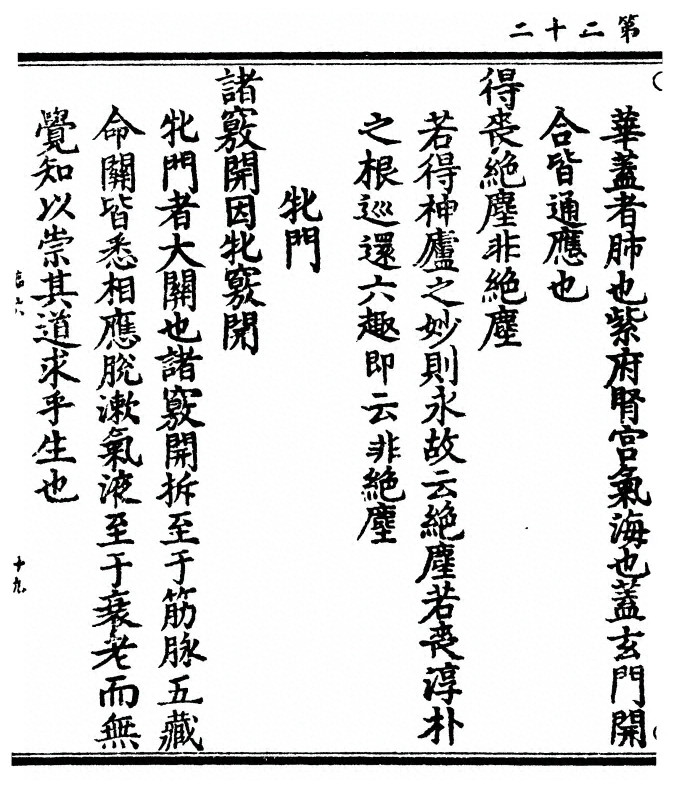 第二十二
華蓋者肺也紫府腎宫氣海也蓋玄門開
合皆通應也
得喪絶塵非絶塵
若得神廬之妙則永故云絶塵若喪淳朴
之根巡還六趣即云非絶塵
牝門
諸竅開因牝竅開
牝門者大關也諸竅開拆至于筋脉五藏
命關皆悉相應脱漱氣液至于衰老而無
覺知以崇其道求乎生也
臨六
十九